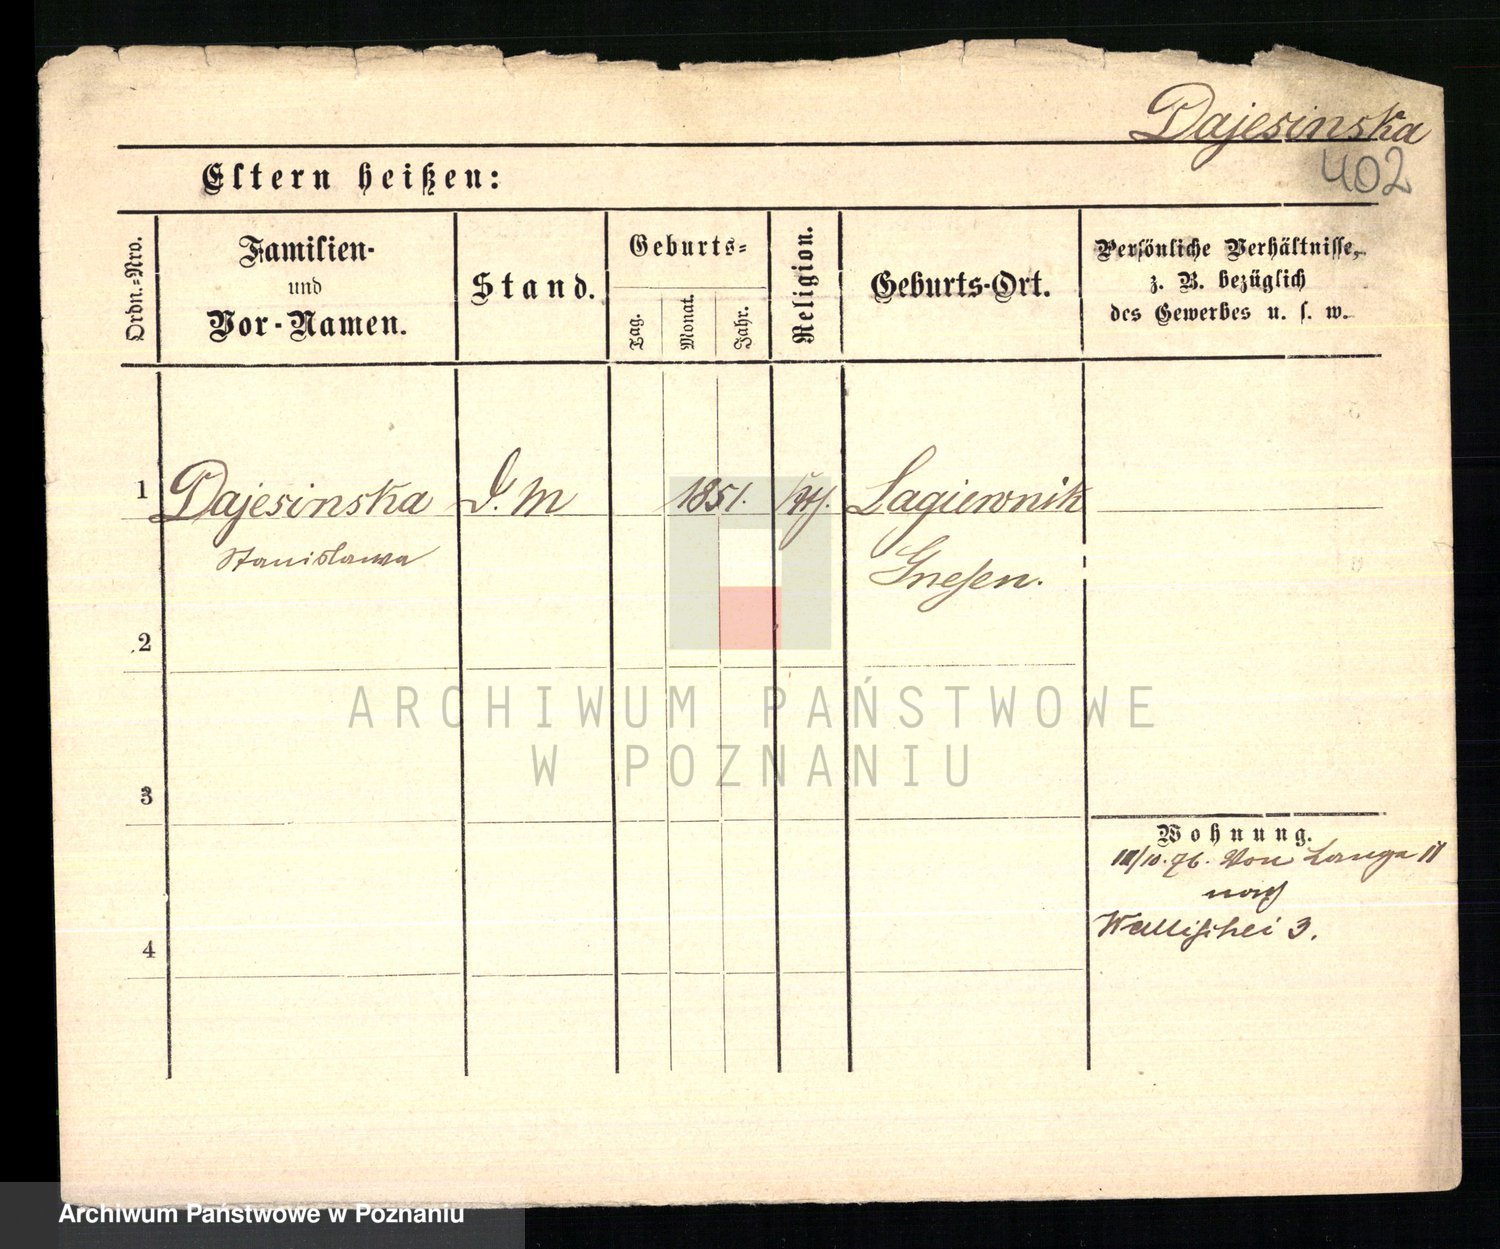 Dajesinska
402
Eltern heißen:
Ordn.-Nro.
Familien-
und
Vor-Namen.
Stand.
Geburts-
Tag.
Monat.
Jahr.
Religion.
Geburts-Ort.
Persönliche Verhältnisse,
z. B. bezüglich
des Gewerbes u. s. w.
1
Dajesinska
D. M
1851.
kth.
Lagiewnik
Stanislawa
Gnesen.
2
ARCHIWUM PAŃSTWOWE
W POZNANIU
3
Wohnung.
/10. 76. Von Lange
nach
Wallischei 3.
4
Archiwum Państwowe w Poznaniu